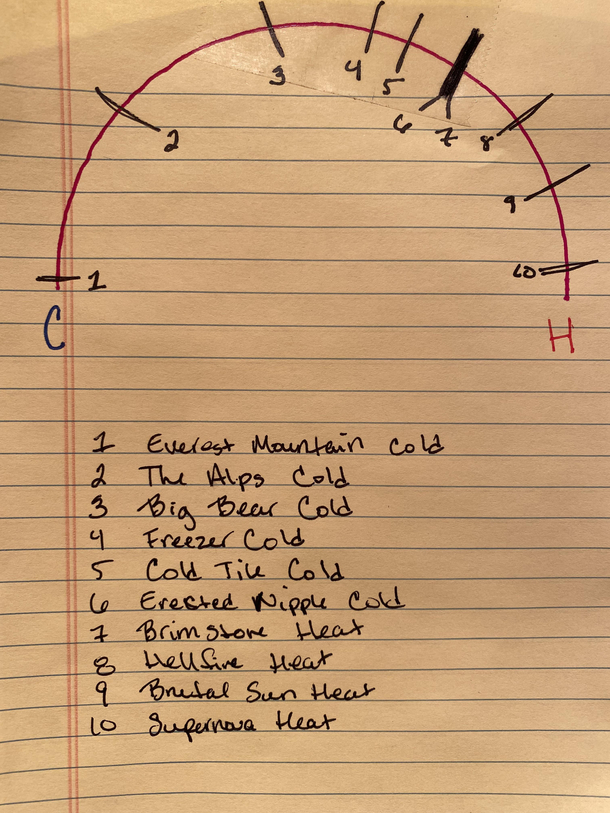 3
4
5
6
7
8
2
9
10
1
C
H
1 Everest Mountain Cold
2 The Alps Cold
3 Big Bear Cold
4 Freezer Cold
5 Cold Tile Cold
6 Erected Nipple Cold
7 Brimstone Heat
8 Hellfire Heat
9 Brutal Sun Heat
10 Supernova Heat